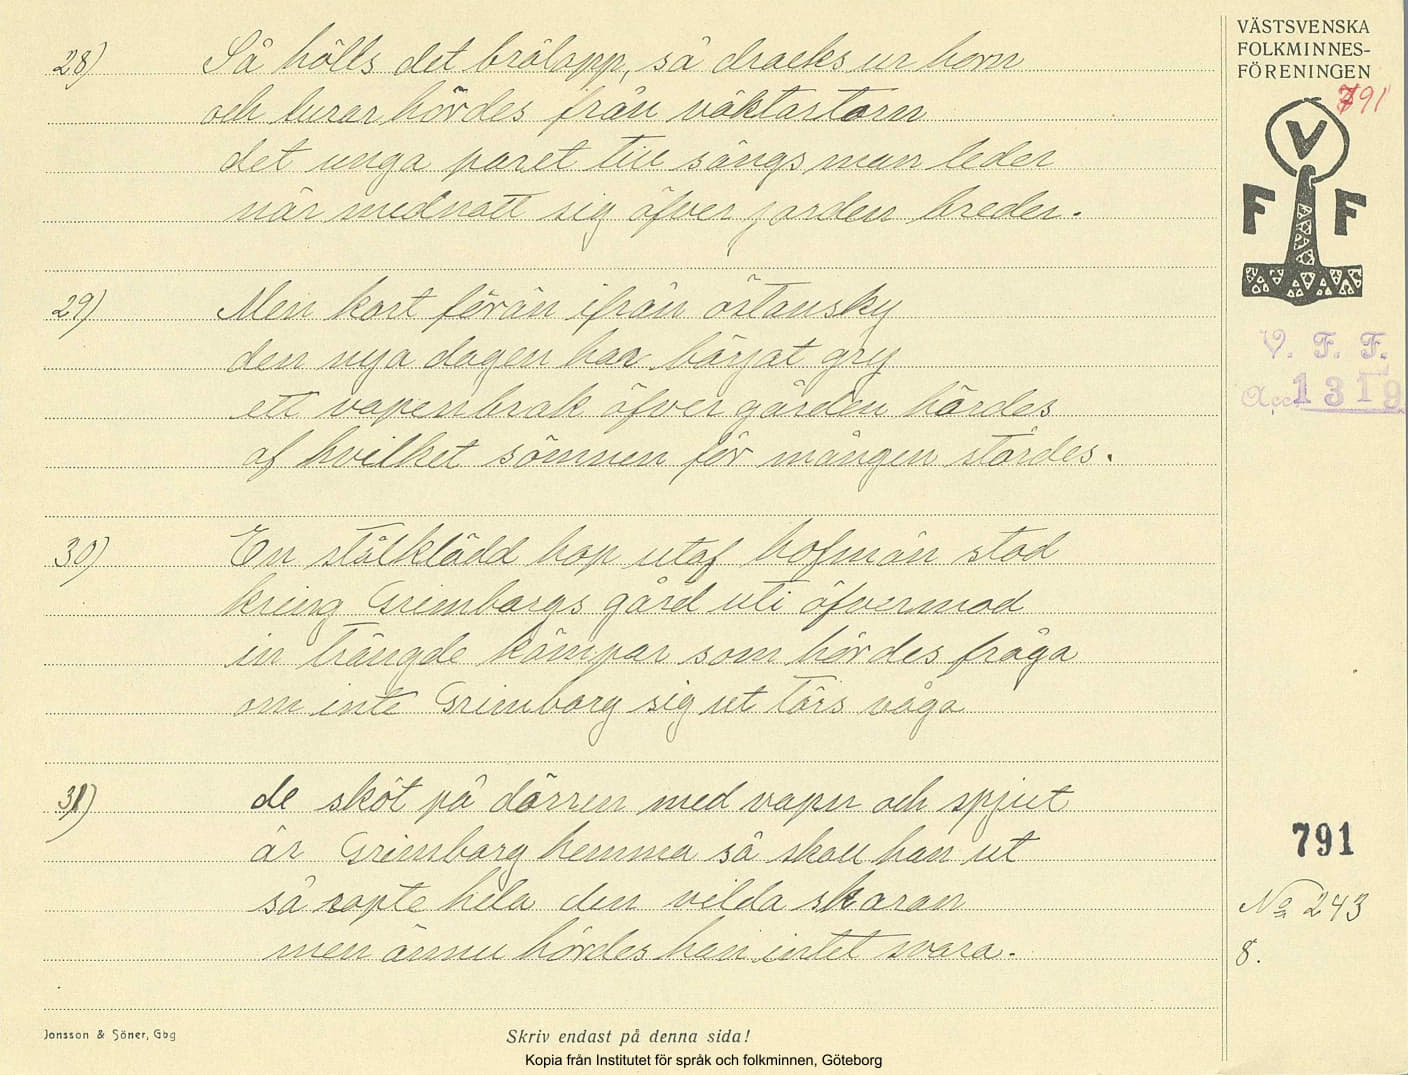 VÄSTSVENSKA
FOLKMINNES-
FÖRENINGEN
791
V
F F
V. F. F.
Acc. 1319
28) Så hölls det brölopp, så dracks ur horn
och lurar hördes från väktartorn
det unga paret till sängs man leder
när mednatt sig öfver jorden breder.
29) Men kort förän ifrån östansky
den nya dagen har börjat gry
ett vapenbrak öfver gården hördes
af hvilket sömnen för mången stördes.
30) En stålklädd hop utaf hofmän stod
kring Grimborgs gård uti öfvermod
in trängde kämpar som hördes fråga
om inte Grimborg sig ut törs våga
31) de sköt på dörren med vapn och spjut
är Grimborg hemma så skall han ut
så ropte hela den vilda skaran
men ännu hördes han intet svara.
791
No 243
8.
Jonsson & Söner, Gbg
Skriv endast på denna sida!
Kopia från Institutet för språk och folkminnen, Göteborg